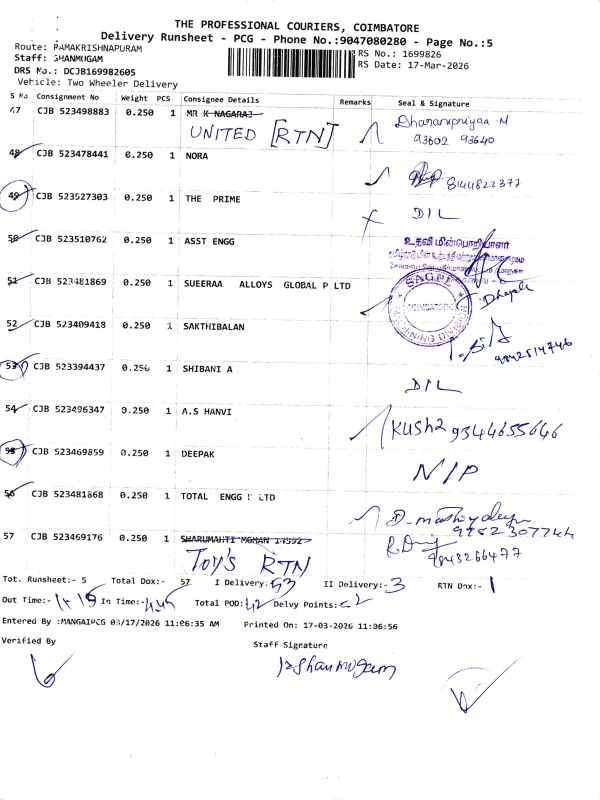 THE PROFESSIONAL COURIERS, COIMBATORE
Delivery Runsheet - PCG - Phone No.:9047080280 - Page No.:5
Route: RAMAKRISHNAPURAM
Staff: SHANMUGAM
DRS No.: DCJB169982605
Vehicle: Two Wheeler Delivery
RS No.: 1699826
RS Date: 17-Mar-2026
S No Consignment No Weight PCS Consignee Details Remarks Seal & Signature
47 CJB 523498883 0.250 1 MR K NAGARAJ
UNITED [RTN]
93602 93640
48 CJB 523478441 0.250 1 NORA
8144822377
49 CJB 523527303 0.250 1 THE PRIME
D/L
50 CJB 523510762 0.250 1 ASST ENGG
உதவி மின்பொறியாளர்
51 CJB 523481869 0.250 1 SUEERAA ALLOYS GLOBAL P LTD
SAGPL
COIMBATORE
MACHINING DIVISION
52 CJB 523409418 0.250 1 SAKTHIBALAN
9842514746
53 CJB 523394437 0.250 1 SHIBANI A
D/L
54 CJB 523496347 0.250 1 A.S HANVI
9344655646
55 CJB 523469859 0.250 1 DEEPAK
N/P
56 CJB 523481868 0.250 1 TOTAL ENGG P LTD
57 CJB 523469176 0.250 1
TOY'S RTN
9843266477
Tot. Runsheet:- 5 Total Dox:- 57 I Delivery:53 II Delivery:-3 RTN Dox:- 1
Out Time:- In Time:- Total POD:42 Delvy Points:-
Entered By :MANGAIPCG 03/17/2026 11:06:35 AM Printed On: 17-03-2026 11:06:56
Verified By Staff Signature